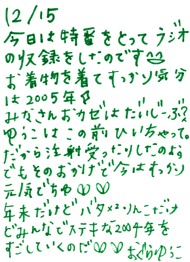 12/15
今日は特番をとってラジオ
の収録をしたのです
お着物を着てすっかり気分
は2005年
みなさんおかぜはだいじょーぶ?
ゆうこはこの前ひいちゃって。
だから注射愛ったりしたのよう
でもそのおかげで今はすっかり
元気でちゅ♡♡
年末だけどバタ×2.りんこだけ
どみんなでステキな2004年を
すごしていくのだ♡♡
おぐらゆうこ